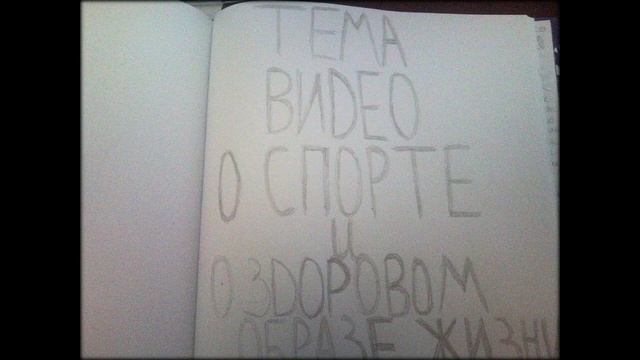 ТЕМА
ВИDЕО
О СПОРТЕ
и
О ЗDОРОВОМ
ОБРАЗЕ ЖИЗНИ